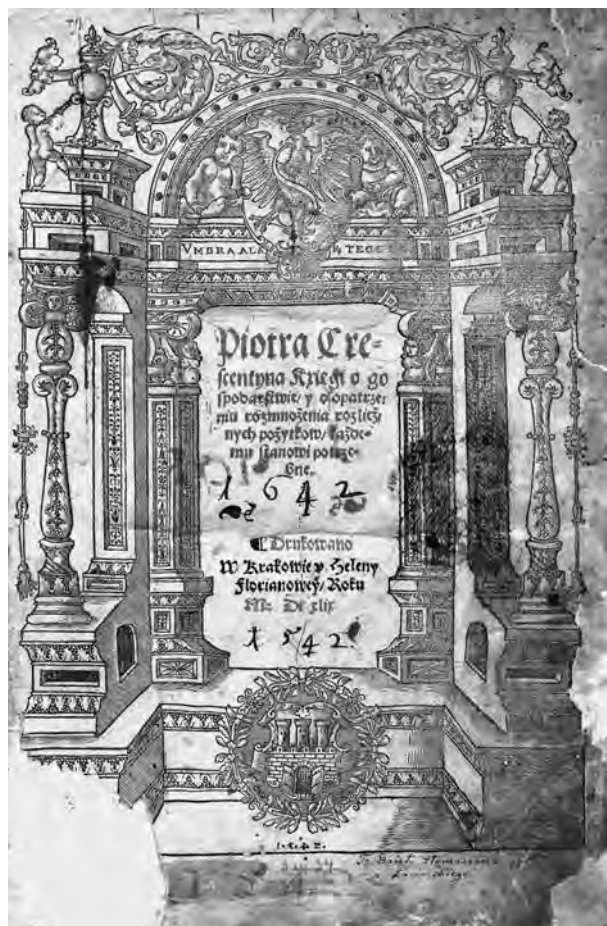 VMBRA ALA
TEGE
Piotra Cre-
scentyna Kxięgi o go
spodarstwie/ y o opatrze:
niu rozmnożenia rozlicz,
nych pożytkow/ każde-
mu stanowi potrze-
bne.
1 6 4 2
Drukowano
W Krakowie v Heleny
Florianowey/ Roku
M. D. xlix
1 5 4 2